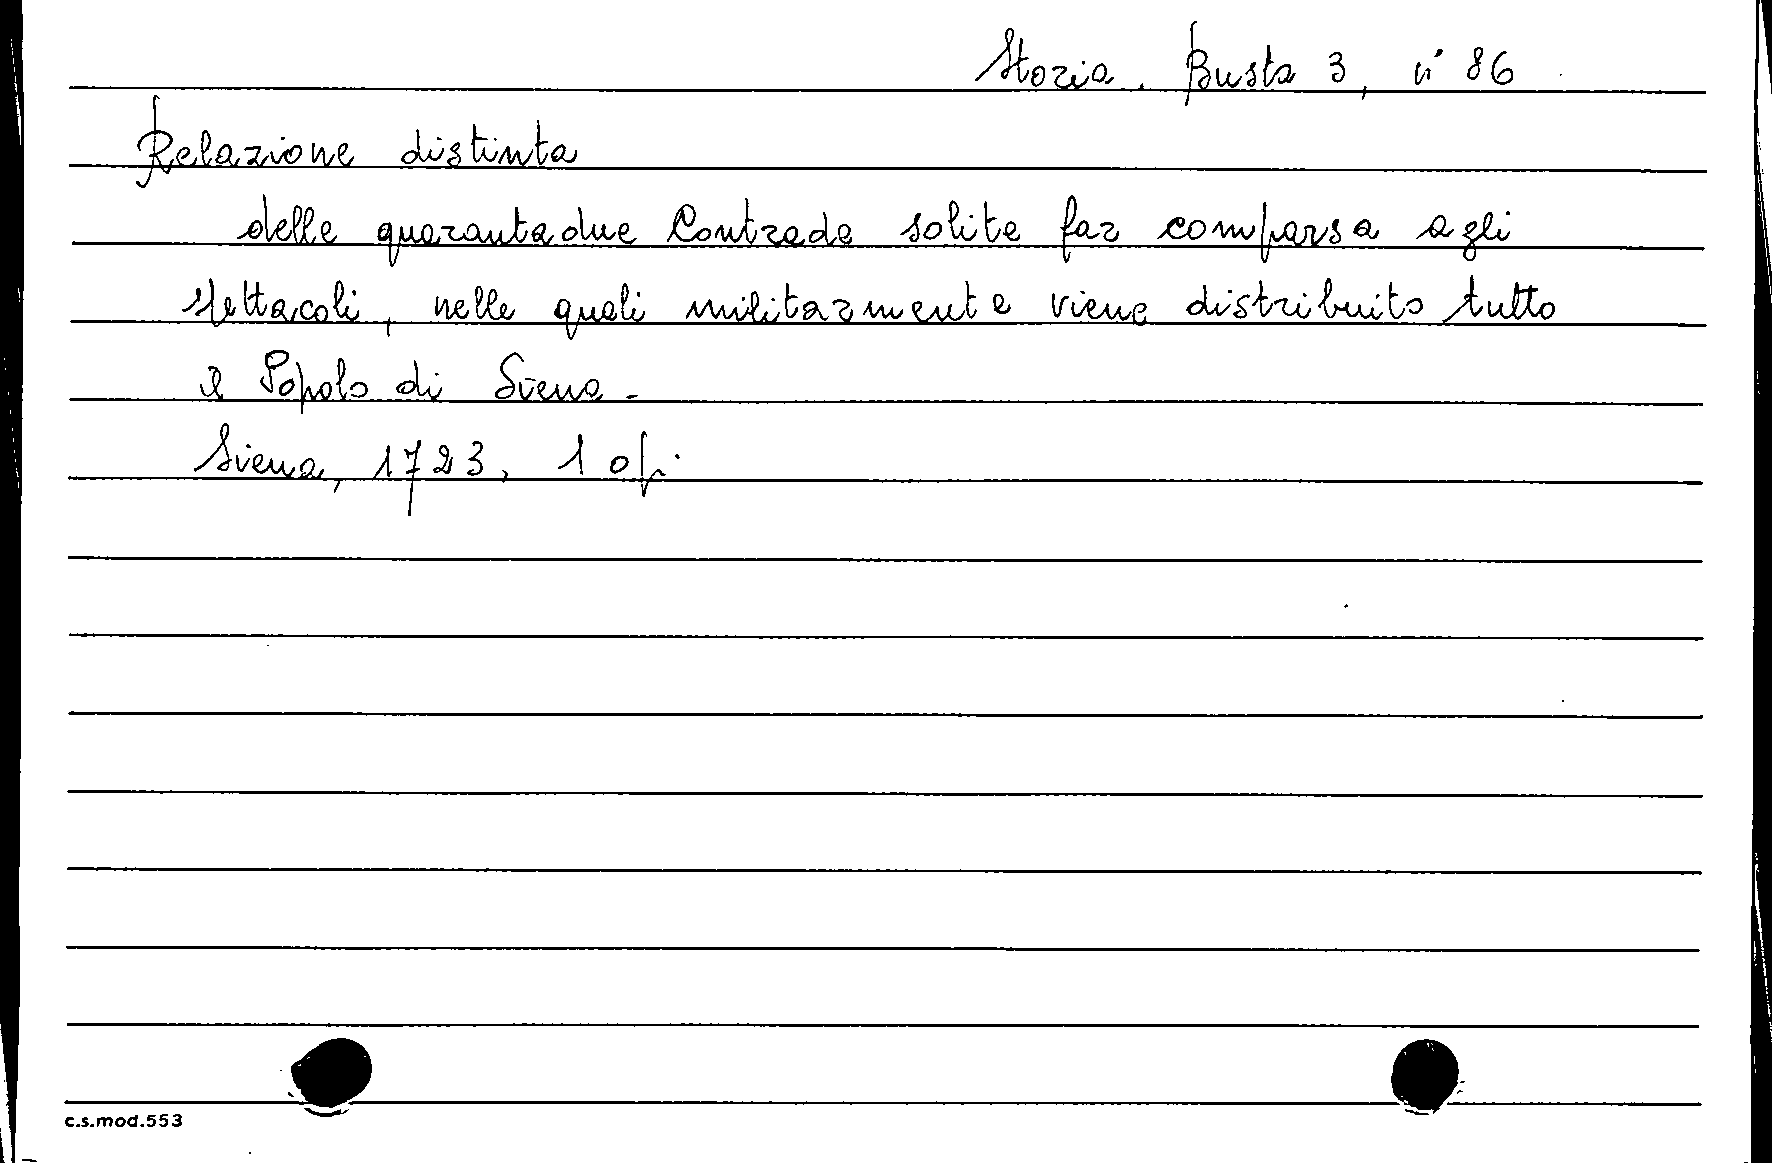 Storia. Busta 3, n° 86
Relazione distinta
delle quarantadue Contrade solite far comparsa agli
spettacoli, nelle quali militarmente viene distribuito tutto
il Popolo di Siena.
Siena, 1723, 1 op.
c.s.mod.553